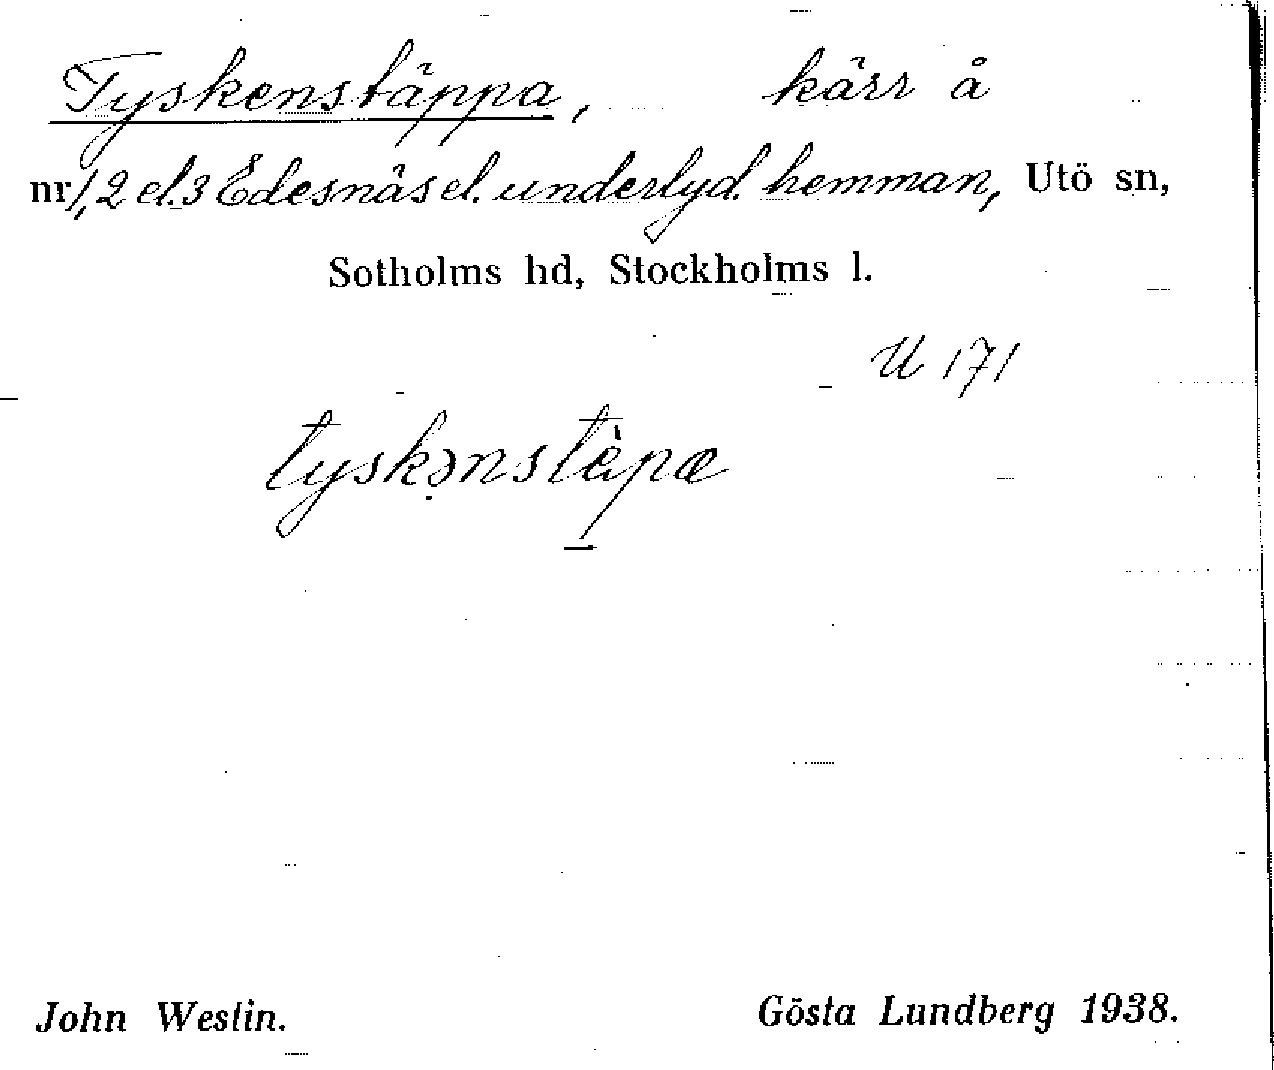 Tyskenstäppa, kärr å
nr 1, 2 el. 3 Edesnäs el. underlyd. hemman, Utö sn,
Sotholms hd, Stockholms l.
U 171
tyskənstὲpa
John Westin.
Gösta Lundberg 1938.